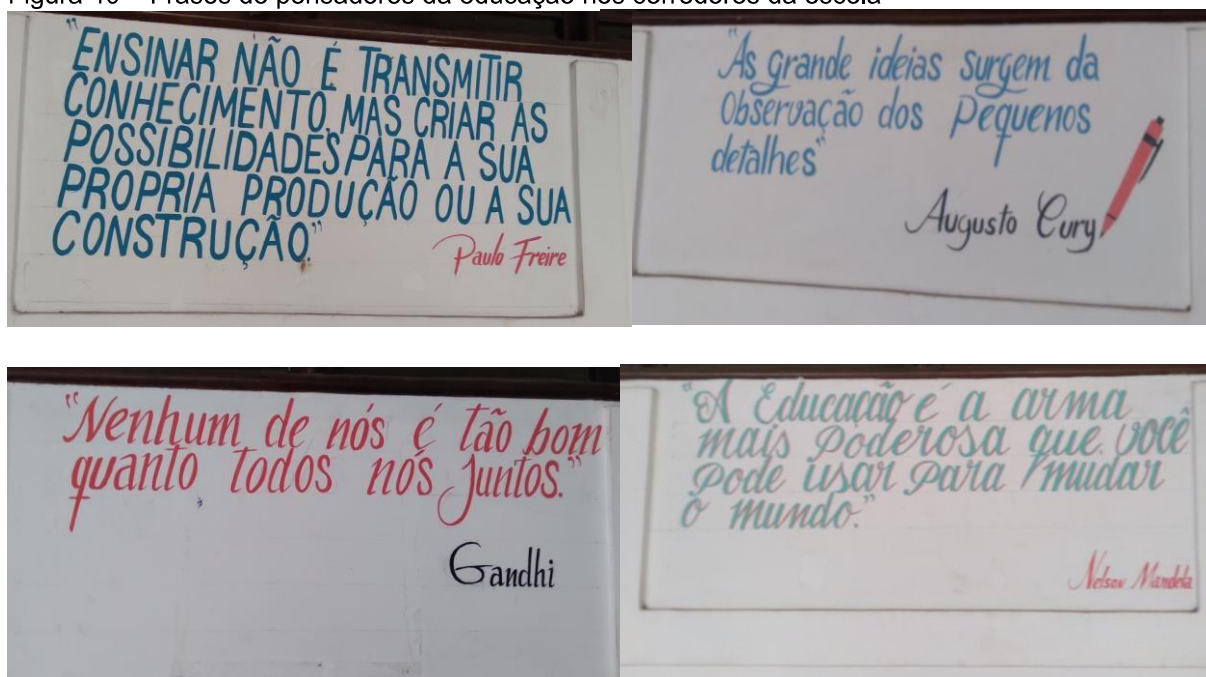 "ENSINAR NÃO É TRANSMITIR
CONHECIMENTO, MAS CRIAR AS
POSSIBILIDADES PARA A SUA
PROPRIA PRODUÇÃO OU A SUA
CONSTRUÇÃO."
Paulo Freire
"As grande ideias surgem da
Observação dos Pequenos
detalhes"
Augusto Cury
"Nenhum de nós é tão bom
quanto todos nós juntos."
Gandhi
"A Educação é a arma
mais Poderosa que você
Pode usar Para mudar
o mundo."
Nelson Mandela